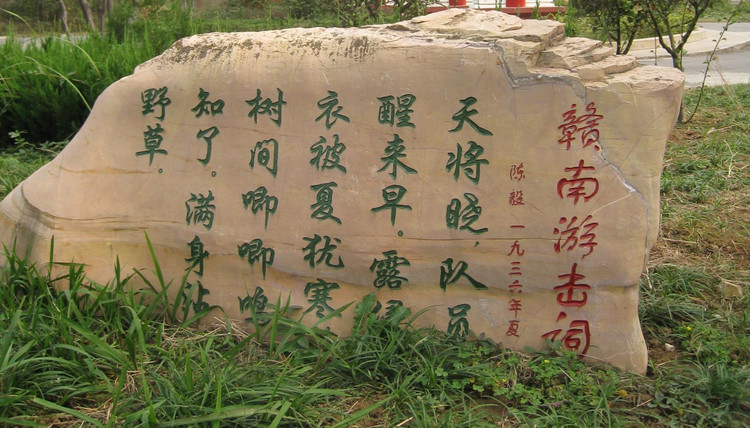 赣南游击词
陈毅 一九三六年夏
天将晓,队员
醒来早。露侵
衣被夏犹寒
树间唧唧鸣
知了。满身沾
野草。